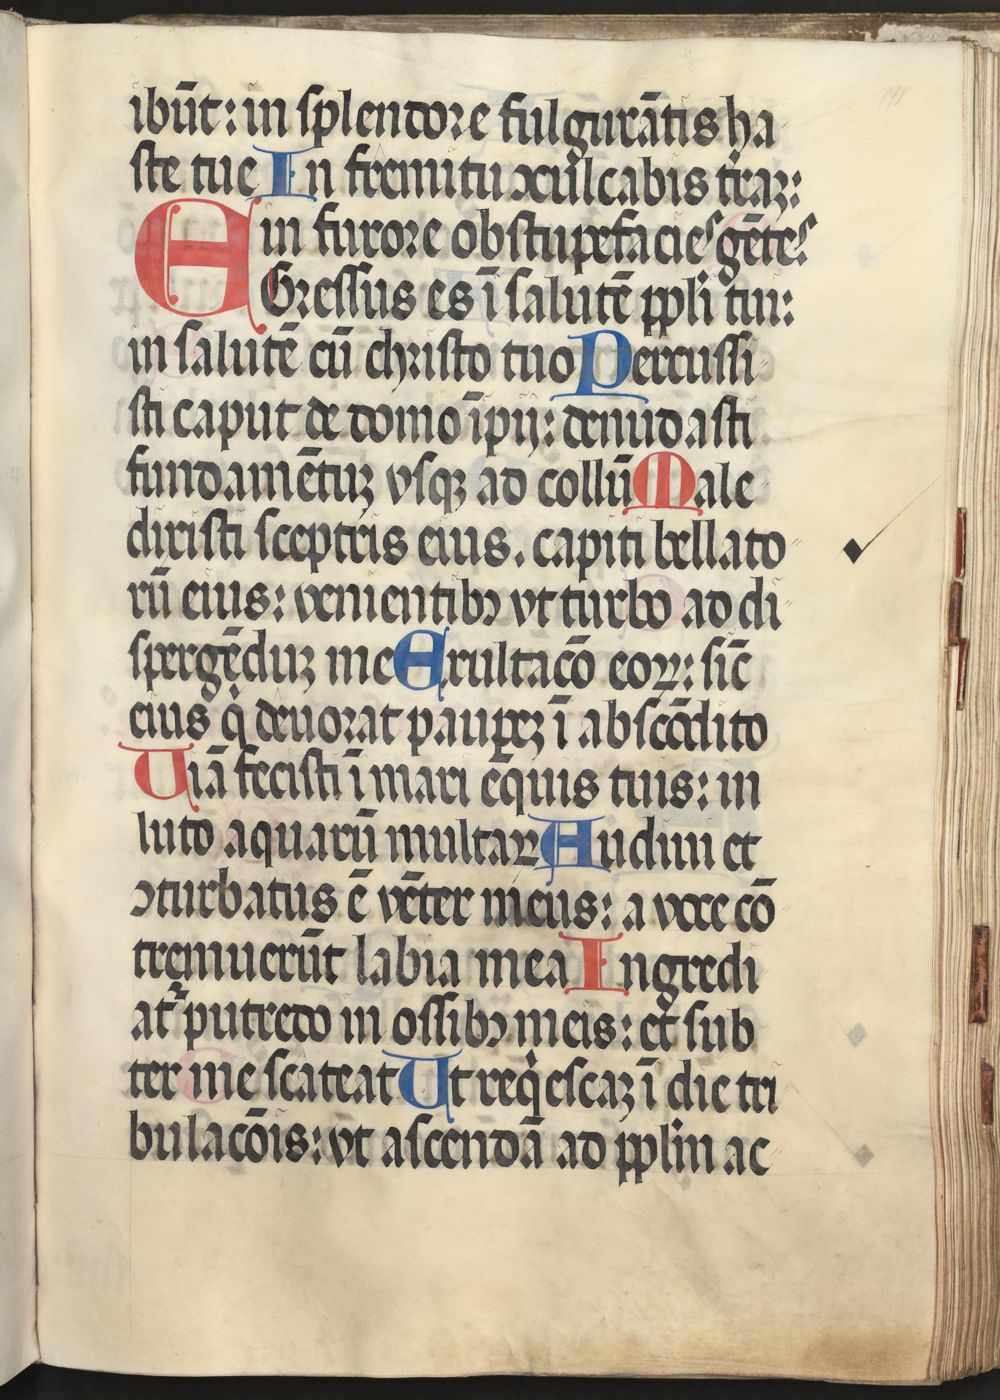 ibūt: in splendore fulgurātis ha
ste tue In fremitu ↄculcabis tr̄aꝫ:
in furore obstupefacies gētes.
EGressus es ī salutē ppli tui:
in salutē cū christo tuo Percussi
sti caput de domo īpij: denudasti
fundamētuꝫ vsqꝫ ad collū Male
dixisti sceptris eius. capiti bellato
rū eius: venientibꝯ vt turbo ad di
spergēduꝫ me Exultacō eoꝝ: sic̄
eius q̇ deuorat pauꝑeꝫ ī abscōdito
Uiā fecisti ī mari eq̄uis tuis: in
luto aquarū multaꝝ Audiui et
ↄturbatus ē vēter meus: a voce cō
tremuerūt labia mea Ingredi
at᷑ putredo in ossibꝯ meis: et sub
ter me scateat Ut req̇escaꝫ ī die tri
bulacōis: vt ascendā ad pplm̄ ac